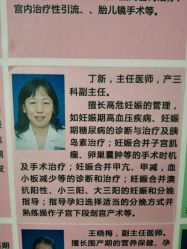 宫内治疗性引流、、胎儿镜手术等。
丁新，主任医师，产三
科副主任。
擅长高危妊娠的管理，
如妊娠期高血压疾病、妊娠
期糖尿病的诊断与治疗及胰
岛素治疗；妊娠合并子宫肌
瘤、卵巢囊肿等的手术时机
及手术治疗；妊娠合并甲亢、甲减，血
小板减少等的诊断和治疗；妊娠合并梅毒
抗阳性、小三阳、大三阳的妊娠和分娩
指导；指导孕妇选择适当的分娩方式并
熟练操作子宫下段剖宫产术等。
王晓梅，副主任医师，
擅长围产期的营养保健、孕